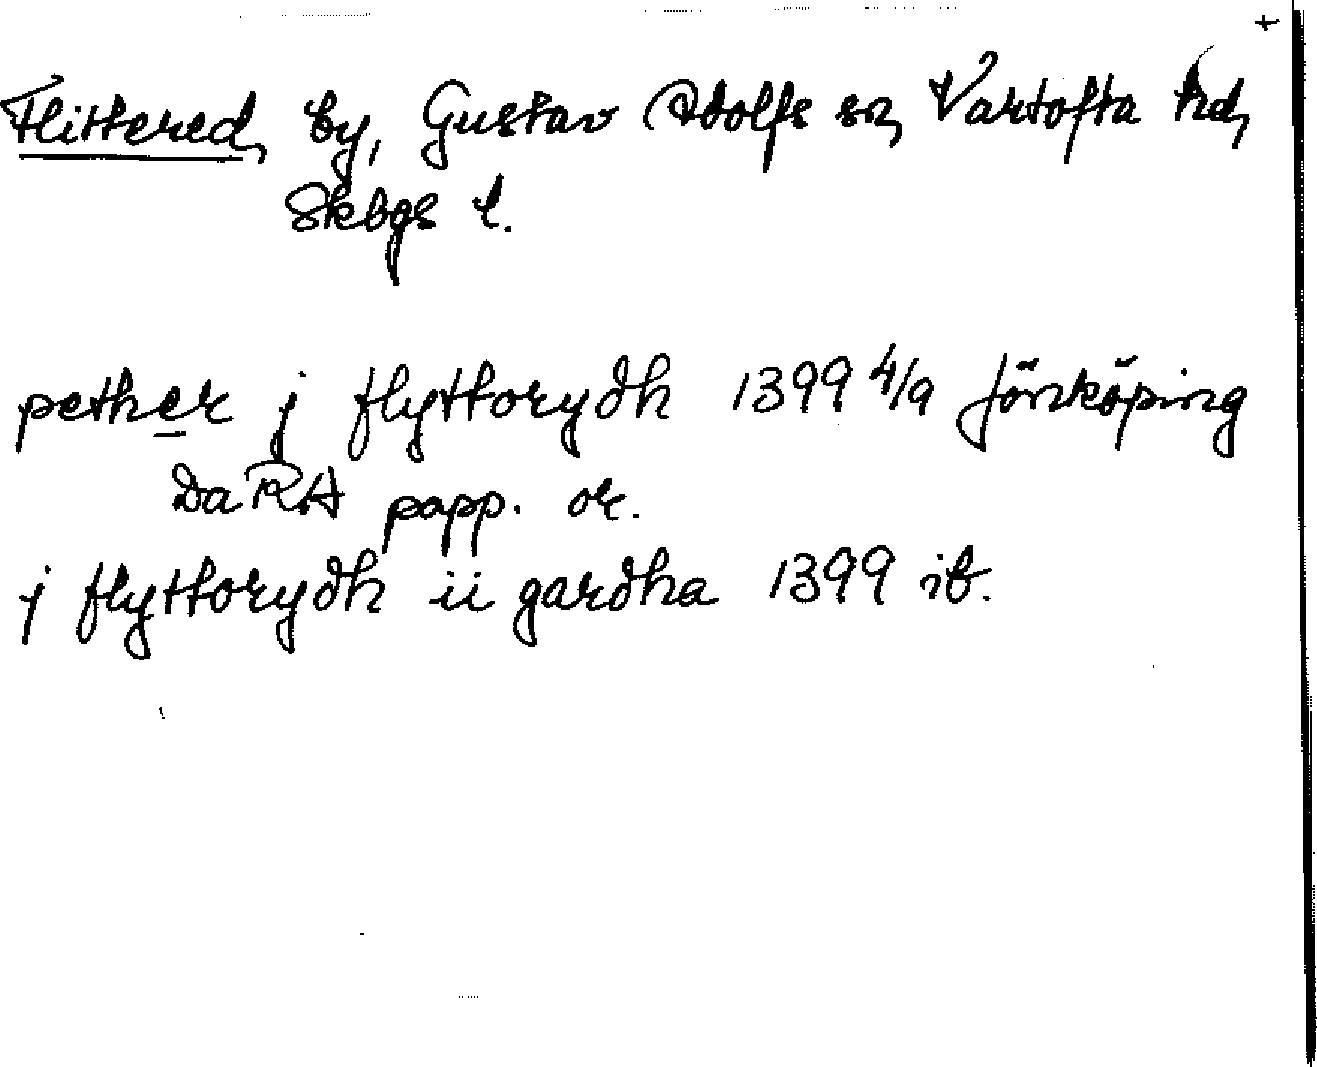 +
Flittered, by, Gustav Adolfs sn, Vartofta hd,
Skbgs l.
pether j flyttorydh 1399 4/9 Jönköping
DaRA papp. or.
j flyttorydh ii gardha 1399 ib.